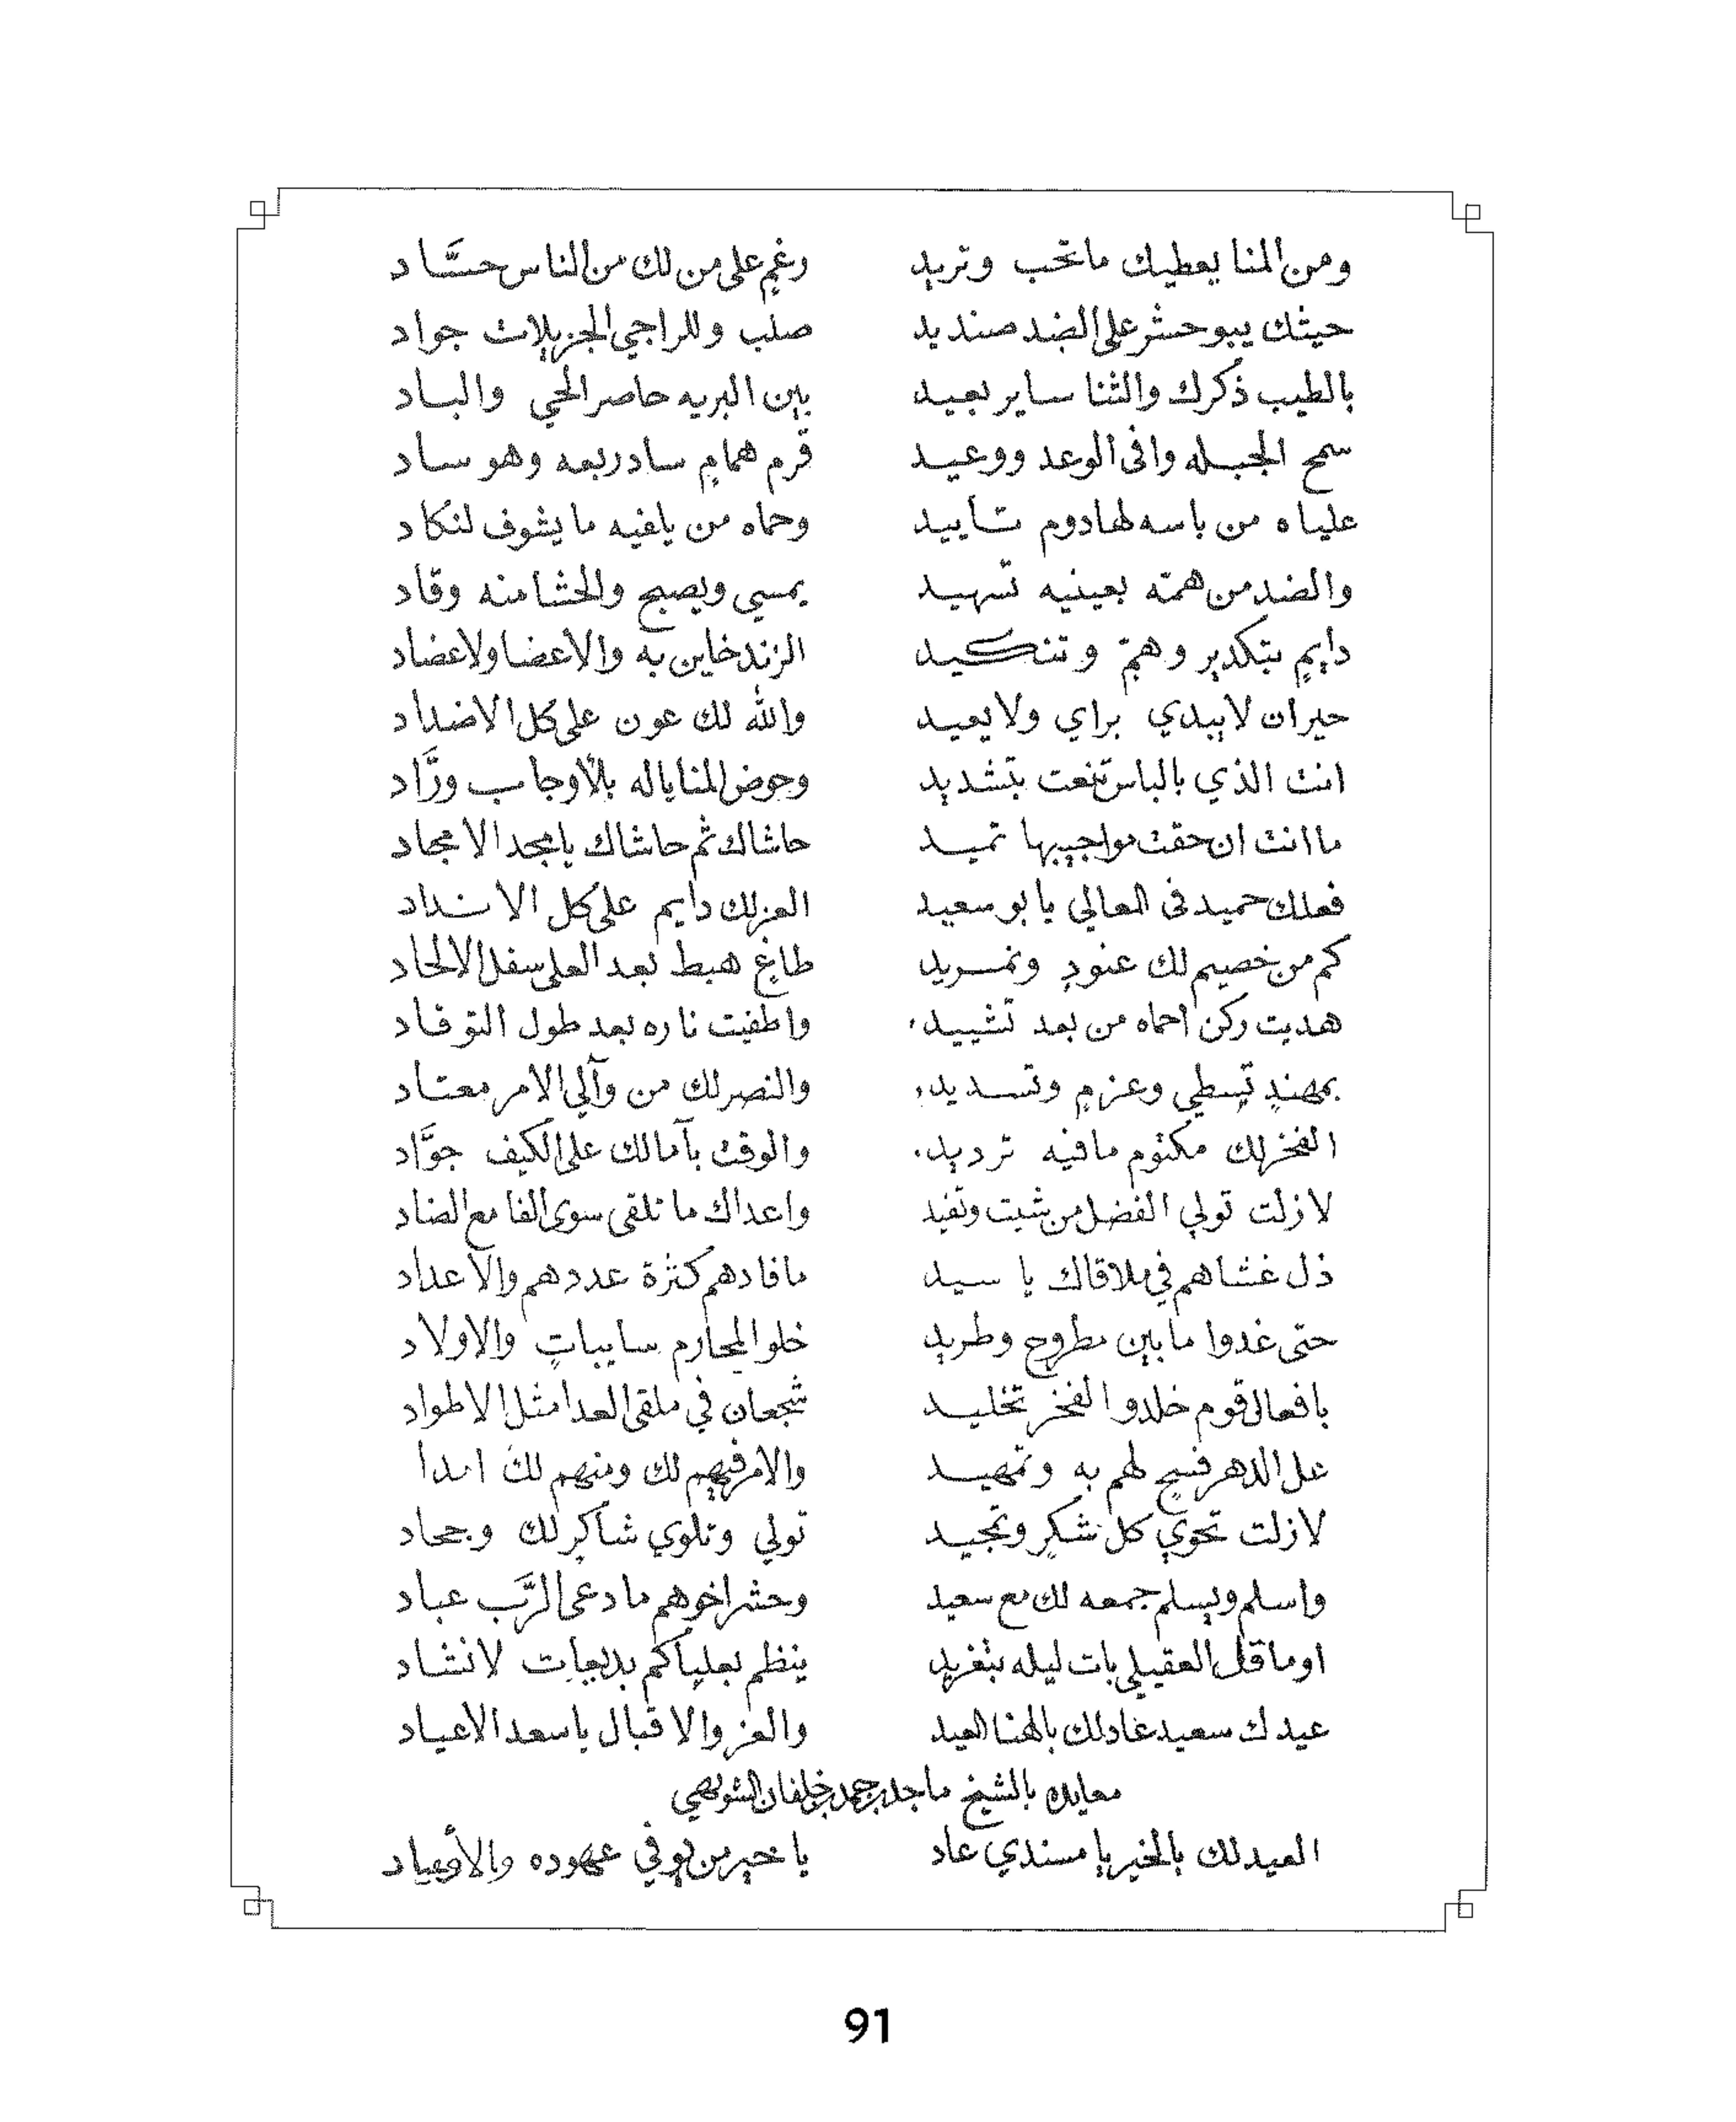 ومن المنا يعطيك ماتحب وتريد رغمٍ على من لك من الناس حسَّاد
حيثك يبوحشر على الضد صنديد صلب وللراجي الجزيلات جواد
بالطيب ذكرك والثنا ساير بعيد بين البريه حاصر الحي والباد
سمح الجبله وافى الوعد ووعيد قرم همامٍ ساد ربعه وهو ساد
علياه من باسه لهادوم تأييد وحماه من يلفيه مايشوف لنكاد
والضد من همته بعينيه تسهيد يمسي ويصبح والحشامنه وقاد
دايمٍ بتكدير وهمّ وتنكيد الزند خاين به والاعضا ولاعضاد
حيران لايبدي براي ولايعيد والله لك عون على كل الاضداد
انت الذي بالباس تنعت بتشديد وحوض المناياله بالأوجاب ورَّاد
ماانت ان حقت مواجيبها تميد حاشاك ثم حاشاك يامجد الامجاد
فعلك حميد فى المعالي يا بوسعيد العزلك دايم على كل الانداد
كم من خصيم لك عنودٍ وتمريد طاغٍ هبط بعد العلى سفل الالحاد
هديت ركن احماه من بعد تشييد واطفيت ناره بعد طول التوقاد
بمهندٍ تسطي وعزمٍ وتسديد والنصرلك من وآلي الامر معتاد
الفخرلك مكتوم مافيه ترديد والوقت بآمالك على الكيف جوَّاد
لازلت تولي الفضل من شيت وتفيد واعداك ماتلقى سوى الفا مع الضاد
ذل غشاهم في ملاقاك يا سيد مافادهم كثرة عددهم والاعداد
حتى غدوا مابين مطروحٍ وطريد خلوا المحارم سايباتٍ والاولاد
بافعال قوم خلدوا الفخر تخليد شجعان في ملقى العدا مثل الاطواد
عل الدهر فسيحٍ لهم به وتمهيد والامرفيهم لك ومنهم لك امدا
لازلت تحوي كل شكرٍ وتمجيد تولي وتلوي شاكرٍ لك وجحاد
واسلم ويسلم جمعه لك مع سعيد وحشر اخوهم مادعى الرَّب عباد
اوماقل العقيلي بات ليله بتغريد ينظم بعلياكم بديعات لانشاد
عيدك سعيد غادلك بالهنا العيد والعز والاقبال ياسعد الاعياد
معايده بالشيخ ماجد بن حمد بن خلفان الشويهي
العيدلك بالخير يا مسندي عاد يا خير من يوفي عهوده والأوعاد
91